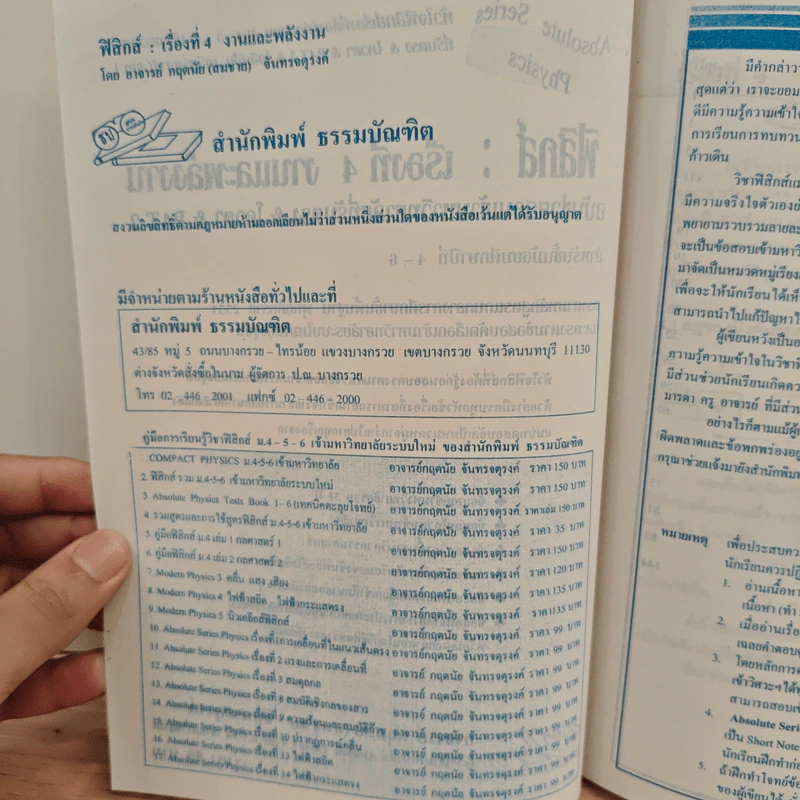 ฟิสิกส์ : เรื่องที่ 4 งานและพลังงาน
โดย อาจารย์ กฤตนัย (สมชาย) จันทรจตุรงค์
สำนักพิมพ์ ธรรมบัณฑิต
สงวนลิขสิทธิ์ตามกฎหมายห้ามลอกเลียนไม่ว่าส่วนหนึ่งส่วนใดของหนังสือเว้นแต่ได้รับอนุญาต
มีจำหน่ายตามร้านหนังสือทั่วไปและที่
สำนักพิมพ์ ธรรมบัณฑิต
43/85 หมู่ 5 ถนนบางกรวย-ไทรน้อย แขวงบางกรวย เขตบางกรวย จังหวัดนนทบุรี 11130
ต่างจังหวัดสั่งซื้อในนาม ผู้จัดการ ป.ณ. บางกรวย
โทร 02-446-2001 แฟกซ์ 02-446-2000
คู่มือการเรียนรู้วิชาฟิสิกส์ ม.4-5-6 เข้ามหาวิทยาลัยระบบใหม่ ของสำนักพิมพ์ ธรรมบัณฑิต
COMPACT PHYSICS ม.4-5-6 เข้ามหาวิทยาลัย อาจารย์กฤตนัย จันทรจตุรงค์ ราคา 150 บาท
2. ฟิสิกส์ รวม ม.4-5-6 เข้ามหาวิทยาลัยระบบใหม่ อาจารย์กฤตนัย จันทรจตุรงค์ ราคา 150 บาท
3. Absolute Physics Tests Book 1-6 (เทคนิคตะลุยโจทย์) อาจารย์กฤตนัย จันทรจตุรงค์ ราคาเล่ม 150 บาท
4. รวมสูตรและการใช้สูตรฟิสิกส์ ม.4-5-6 เข้ามหาวิทยาลัย อาจารย์กฤตนัย จันทรจตุรงค์ ราคา 35 บาท
5. คู่มือฟิสิกส์ ม.4 เล่ม 1 กลศาสตร์ 1 อาจารย์กฤตนัย จันทรจตุรงค์ ราคา 150 บาท
6. คู่มือฟิสิกส์ ม.4 เล่ม 2 กลศาสตร์ 2 อาจารย์กฤตนัย จันทรจตุรงค์ ราคา 120 บาท
7. Modern Physics 3 คลื่น แสง เสียง อาจารย์กฤตนัย จันทรจตุรงค์ ราคา 135 บาท
8. Modern Physics 4 ไฟฟ้าสถิต ไฟฟ้ากระแสตรง อาจารย์กฤตนัย จันทรจตุรงค์ ราคา135 บาท
9. Modern Physics 5 นิวเคลียสฟิสิกส์ อาจารย์กฤตนัย จันทรจตุรงค์ ราคา 99 บาท
10. Absolute Series Physics เรื่องที่1การเคลื่อนที่ในแนวเส้นตรง อาจารย์กฤตนัย จันทรจตุรงค์ ราคา 99 บาท
11. Absolute Series Physics เรื่องที่ 2 แรงและการเคลื่อนที่ อาจารย์ กฤตนัย จันทรจตุรงค์ ราคา 99 บาท
12. Absolute Series Physics เรื่องที่ 3 สมดุลกล อาจารย์ กฤตนัย จันทรจตุรงค์ ราคา 99 บาท
13. Absolute Series Physics เรื่องที่ 8 สมบัติเชิงกลของสาร อาจารย์ กฤตนัย จันทรจตุรงค์ ราคา 99 บาท
14. Absolute Series Physics เรื่องที่ 9 ความร้อนและสมบัติก๊าซ อาจารย์ กฤตนัย จันทรจตุรงค์ ราคา 99 บาท
15. Absolute Series Physics เรื่องที่ 10 ปรากฏการณ์คลื่น อาจารย์ กฤตนัย จันทรจตุรงค์ ราคา 99 บาท
16. Absolute Series Physics เรื่องที่ 13 ไฟฟ้าสถิต อาจารย์ กฤตนัย จันทรจตุรงค์ ราคา 99 บาท
17. Absolute Series Physics เรื่องที่ 14 ไฟฟ้ากระแสตรง อาจารย์ กฤตนัย จันทรจตุรงค์ ราคา 99 บาท
มีคำกล่าวว
สุดแต่ว่า เราจะยอม
ดีมีความรู้ความเข้าใจ
การเรียนการทบทวน
ก้าวเดิน
วิชาฟิสิกส์แ
มีความจริงใจตัวเองย
พยายามรวบรวมลายละ
จะเป็นข้อสอบเข้ามหาวิ
มาจัดเป็นหมวดหมู่เรียง
เพื่อจะให้นักเรียนได้เห็
สามารถนำไปแก้ปัญหาใ
ผู้เขียนหวังเป็นอ
ความรู้ความเข้าใจในวิชาฟิ
มีส่วนช่วยนักเรียนเกิดคว
มารดา ครู อาจารย์ ที่มีส่ว
อย่างไรก็ตามแม้ผู้เ
ผิดพลาดและข้อพกพร่องอยู่
กรุณาช่วยแจ้งมายังสำนักพิม
หมายเหตุ เพื่อประสบคว
นักเรียนควรปฏิ
1. อ่านเนื้อหา
เนื้อหา (ทำ
2. เมื่ออ่านเรื่อ
เฉลยคำตอบ
3. โดยหลักการค
เข้าวิศวะฯได้ท
สามารถสอบเข
4. Absolute Seri
เป็น Short Note
นักเรียนฝึกทำก่อ
5. ถ้าฝึกทำโจทย์ข้อ
ของผู้เขียนได้